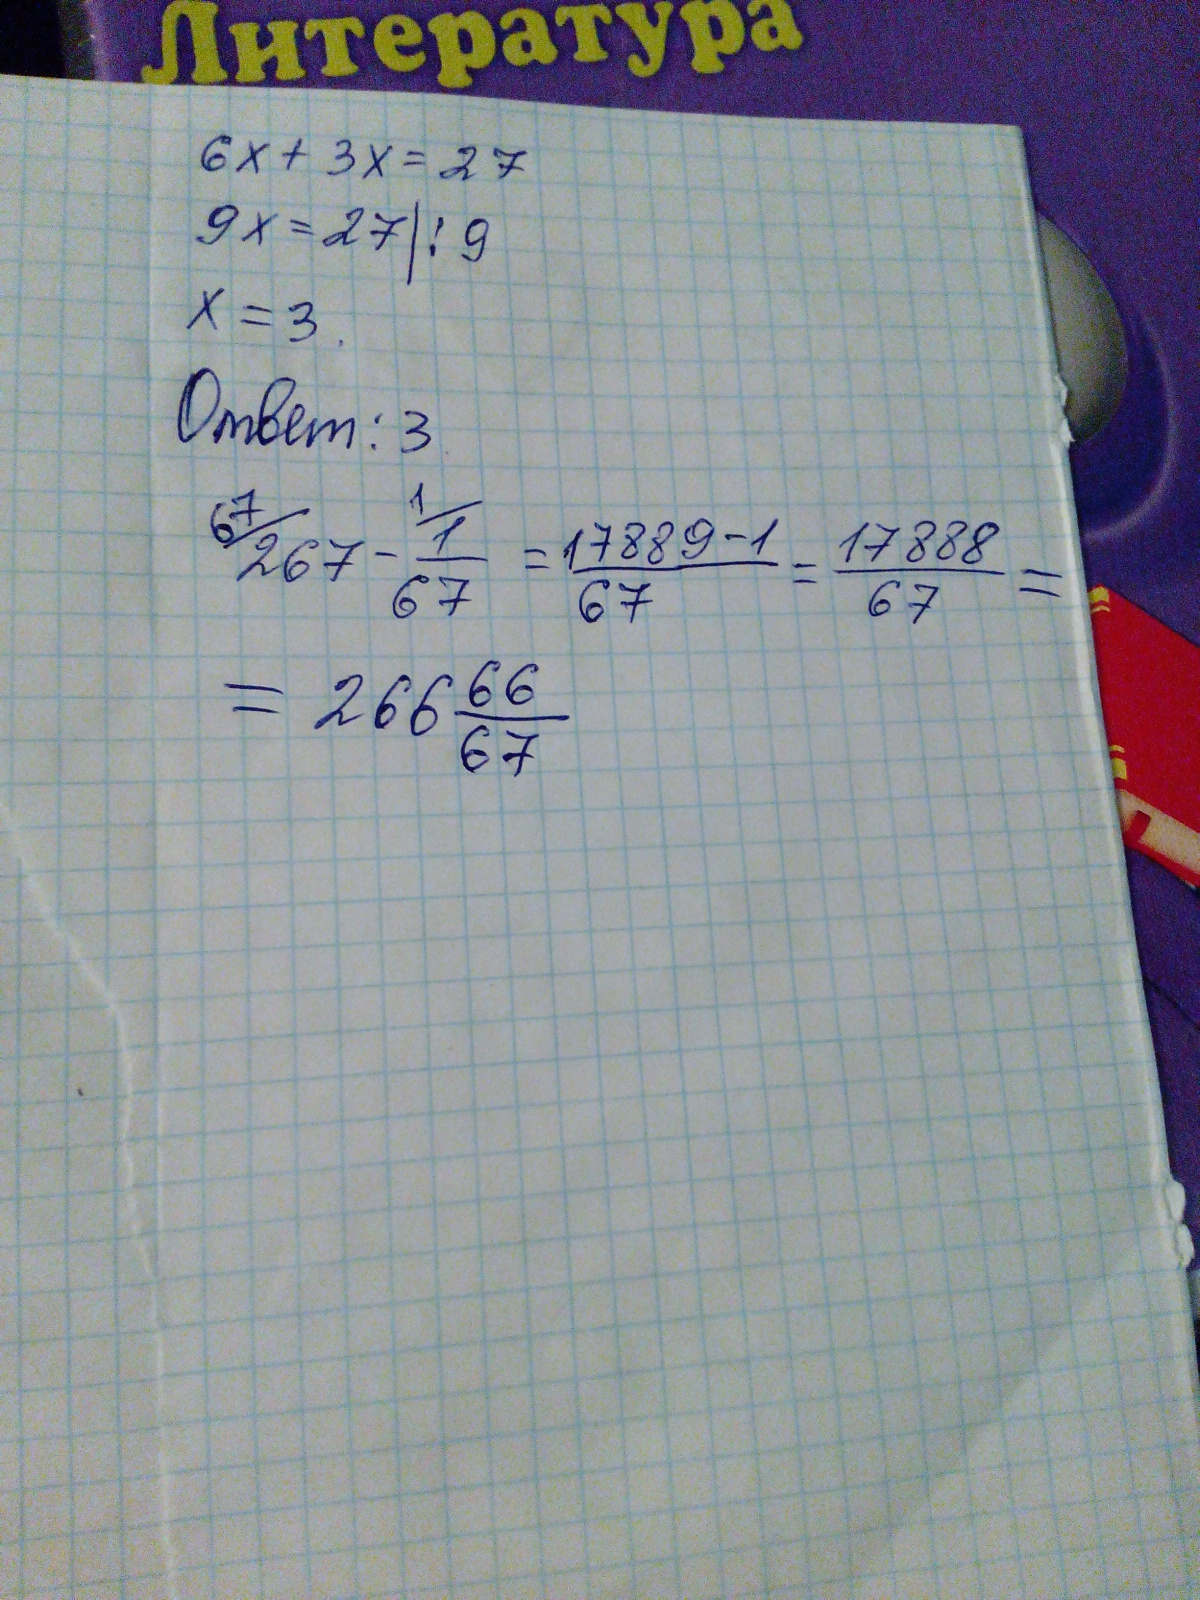 Литература
6x + 3x = 27
9x = 27 | : 9
x = 3.
Ответ: 3
67/ 267 - 1/ 1/67 = 17889-1/67 = 17888/67 =
= 266 66/67